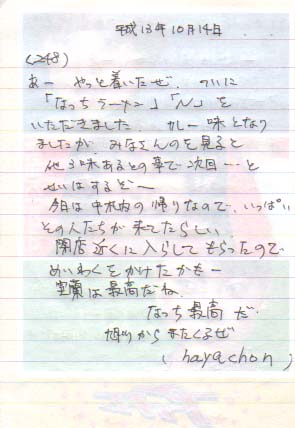 平成13年10月14日
(248)
あー やっと着いたぜ. ついに
「なっちラーメン」「N」を
いただきました. カレー味となり
ましたが. みなさんのを見ると
他3味あるとの事で次回…と
はするぞー
今日は の帰りなので. いっぱい
その人たちが来てたらしい
閉店近くに入らしてもらったので
めいわくをかけたかもー
は最高だね
なっち最高だ.
からまたくるぜ
(hayachon)